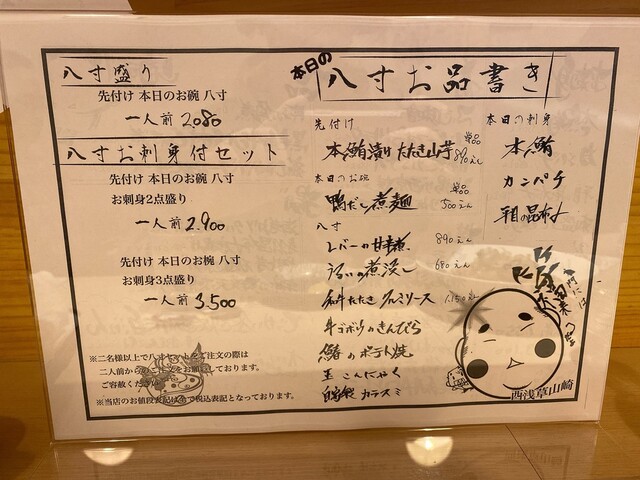 八寸盛り
先付け 本日のお碗 八寸
一人前 2,080
八寸お刺身付セット
先付け 本日のお碗 八寸
お刺身2点盛り
一人前 2,900
先付け 本日のお碗 八寸
お刺身3点盛り
一人前 3,500
※二名様以上で八寸セットをご注文の際は
二人前からの
ご容赦ください
※当店のお値段表記は全て税込表記となっております。
本日の
八寸お品書き
先付け
本鮪漬け たたき山芋 単品 890えん
本日のお碗
鴨だし煮麺 単品 500えん
八寸
レバーの甘煮 890えん
うるいの煮浸し 680えん
和牛たたき クルミソース 1,150えん
牛ゴボウのきんぴら
鰆のポテト焼
玉こんにゃく
自家製 カラスミ
本日の刺身
本鮪
カンパチ
平目の昆布〆
西浅草山崎